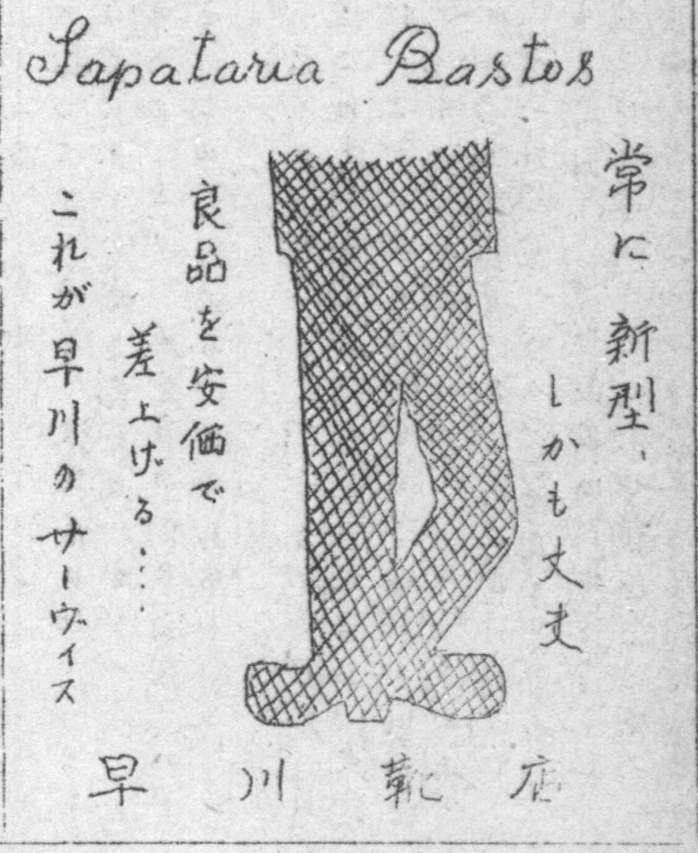 Sapataria Bastos
常に新型、
しかも丈夫
良品を安価で
差上げる・・・・
これが早川のサーヴィス
早川靴店